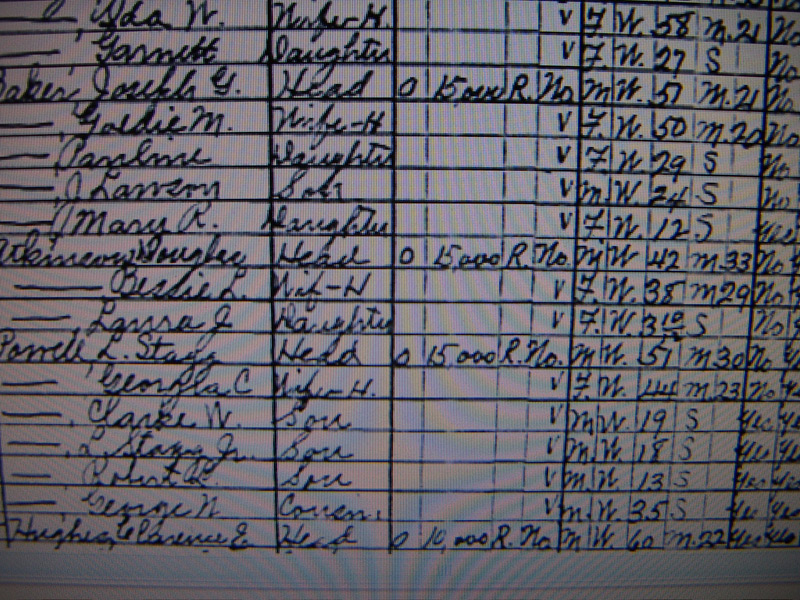 —, Ida W. Wife-H. V F. W. 58 M. 21 No
—, Garnett Daughter V F. W. 27 S No
Baker, Joseph G. Head O 15,000 R. No M W. 57 M. 21 No
—, Goldie M. Wife-H V F. W. 50 M. 20 No
—, Pauline Daughter V F. W. 29 S No
—, J Lawson Son V M. W. 24 S No
—, Mary R. Daughter V F. W. 12 S Yes
Atkinson Douglas Head O 15,000 R. No. M W 42 M. 33 No
— Bessie L. Wife-H V F. W. 38 M 29 No
—, Laura J Daughter V F. W. 3 10/12 S No
Powell L. Stagg Head O 15,000 R. No. M W. 51 M 30 No
—, Georgia C Wife-H. V F. W. 44 M. 23 No
—, Clarke W. Son V M W. 19 S Yes
—, L. Stagg Jr. Son V M W. 18 S Yes
—, Robert Son V M W. 13 S Yes
—, George N. Cousin. V M W. 35 S Yes
Hughes, Clarence E. Head O 10,000 R. No M W. 60 M. 22 Yes